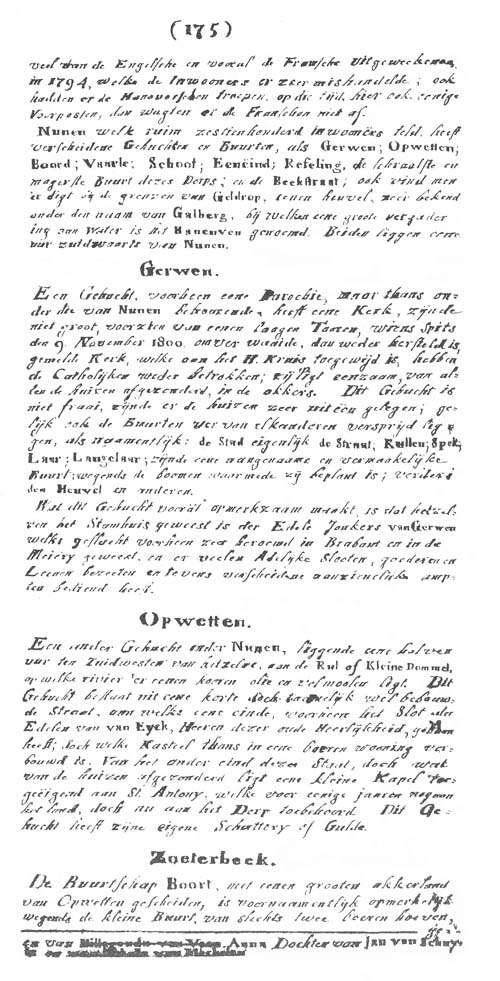 (175)
veel van de Engelsche en vooral de Fransche Uitgeweekenen
in 1794, welke de Inwooners er zeer mishandelde; ook
hadden er de Hanoversche troepen, op die tijd, hier ook eenige
Voorposten, dan wagten er de Franschen niet af.
Nunen welk ruim zestienhonderd inwooners teld, heeft
verscheidene Gehuchten en Buurten, als Gerwen; Opwetten;
Boord; Vaarle; Schoot; Eeneind; Refeling, de schraalste en
magerste Buurt dezes Dorps; en de Beekstraat; ook vind men
er digt bij de grenzen van Geldrop, eenen heuvel, zeer bekend
onder den naam van Galberg, bij welken eene groote vergader
ing van Water is het Hanenven genoemd. Beiden liggen eene
uur zuidwaarts van Nunen.
Gerwen.
Een Gehucht, voorheen eene Parochie, maar thans on-
der die van Nunen behoorende, heeft eene Kerk, zijnde
niet groot, voorzien van eenen laagen Tooren, wiens spits
den 9 November 1800 omver waaide, dan weder hersteld is,
gemelde Kerk, welke aan het H. Kruis toegewijd is, hebben
de Catholijken weder betrokken; zij ligt eenzaam, van al-
len de huizen afgezonderd, in de akkers. Dit Gehucht is
niet fraai, zijnde er de huizen zeer uiteen gelegen; ge-
lijk ook de Buurten ver van elkanderen verspreid lig
gen, als naamentlijk: de Stad eigenlijk de Straat, Rullen; Spek,
Laar; Langelaar; zijnde eene aangenaame en vermakelijke
Buurt, wegends de boomen waarmede zij beplant is; verders
den Heuvel en anderen.
Wat dit Gehucht vooral opmerkzaam maakt, is dat hetzel-
ven het Stamhuis geweest is der Edele Jonkers van Gerwen
welks geslacht voorheen zeer beroemd in Braband en in de
Meiery geweest, en er veelen Adelyke Slooten, goederen en
Leenen bezeeten en tevens verscheidene aanzienelijke amp-
ten bediend heeft.
Opwetten.
Een ander Gehucht onder Nunen, liggende eene halven
uur ten Zuidwesten van hetzelve, aan de Rul of Kleine Dommel,
op welke rivier er eenen kooren olie en volmoolen ligt. Dit
Gehucht bestaat uit eene korte doch taamelijk wel bebouw-
de Straat, aan welks eene einde, voorheen het Slot der
Edelen van van Eyck, Heeren dezer oude Heerlijkheid, gestaan
heeft; doch welke Kasteel thans in eene boeren wooning ver-
bouwd is. Van het ander eind dezer Straat, doch wat
van de huizen afgezonderd ligt eene kleine Kapel toe-
geëigend aan St. Antony, welke voor eenige jaaren nog aan
het land, doch nu aan het Dorp toebehoord. Dit Ge-
hucht heeft zijne eigene Schuttery of Gulde.
Zoeterbeek.
De Buurtschap Boort, met eenen grooten akkerland
van Opwetten gescheiden, is voornaamentlijk opmerkelijk
wegends de kleine Buurt, van slechts twee boeren hoeven,
ge-
en van Anna Dochter van Jan van